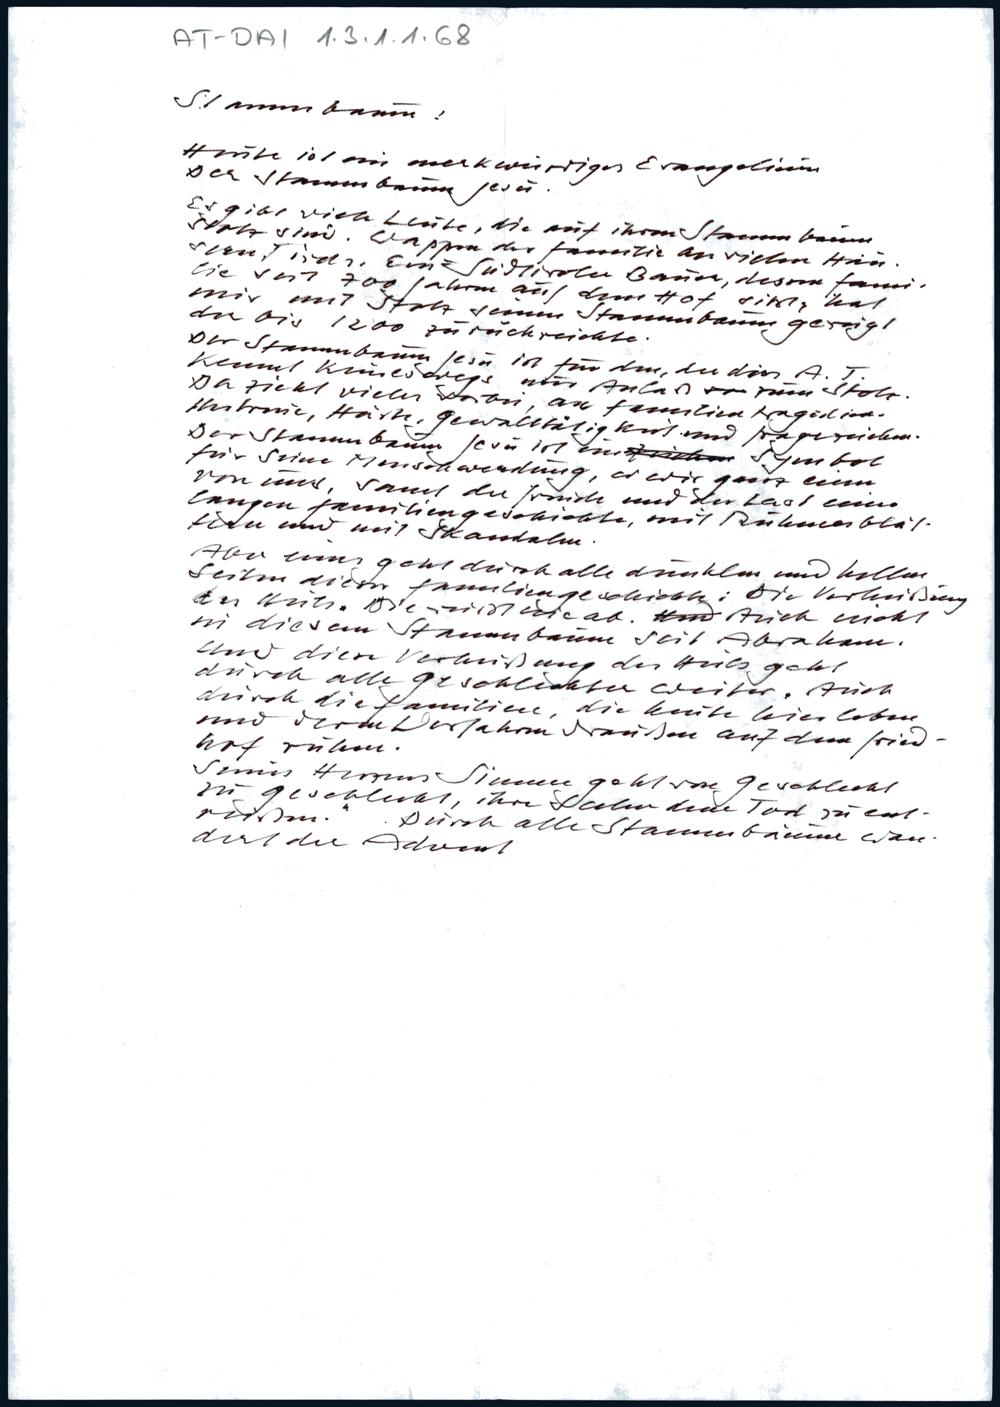 AT-DAI 1.3.1.1.68
Stammbaum!
Heute ist ein merkwürdiges Evangelium
Der Stammbaum Jesu.
Es gibt viele Leute, die auf ihren Stammbaum
stolz sind. Wappen der Familie an vielen Häu-
sern Tirols. Ein Südtiroler Bauer, dessen Fami-
lie seit 700 Jahren auf dem Hof sitzt, hat
mir mit Stolz seinen Stammbaum gezeigt
der bis 1200 zurückreichte.
Der Stammbaum Jesu ist für den, der das A. T.
kennt keineswegs nur Anlaß zum Stolz.
Da zieht vieles vorbei, an Familientragödien.
Untreue, Härte, Gewalttätigkeit und Fragezeichen.
Der Stammbaum Jesu ist ein Zeichen Symbol
für seine Menschwerdung, er wir ganz einer
von uns, samt der Freude und der Last einer
langen Familiengeschichte, mit Ruhmesblät-
tern und mit Skandalen.
Aber eines geht durch alle dunklen und hellen
Seiten dieser Familiengeschichte: Die Verheißung
des Heils. Die reißt nie ab. Und Auch nicht
in diesem Stammbaum seit Abraham.
Und diese Verheißung des Heils geht
durch alle Geschlechter weiter. Auch
durch die Familien, die heute hier leben
und deren Vorfahren draußen auf dem Fried-
hof ruhen.
Seines Herzens Sinnen geht von Geschlecht
zu Geschlecht, ihre Seelen dem Tod zu ent-
reißen." Durch alle Stammbäume wan-
dert der Advent